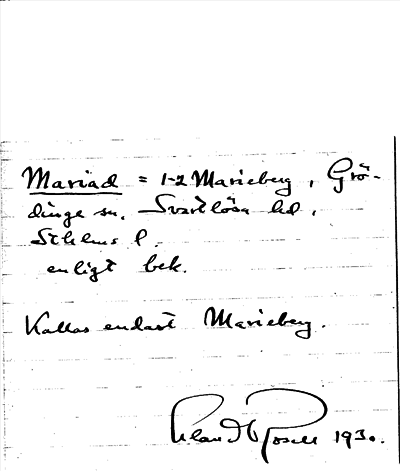 Mariad = 1-2 Marieberg, Grö-
dinge sn. Svartlösa hd.
Sthlms l.
enligt bek.
Kallas endast Marieberg.
1930.